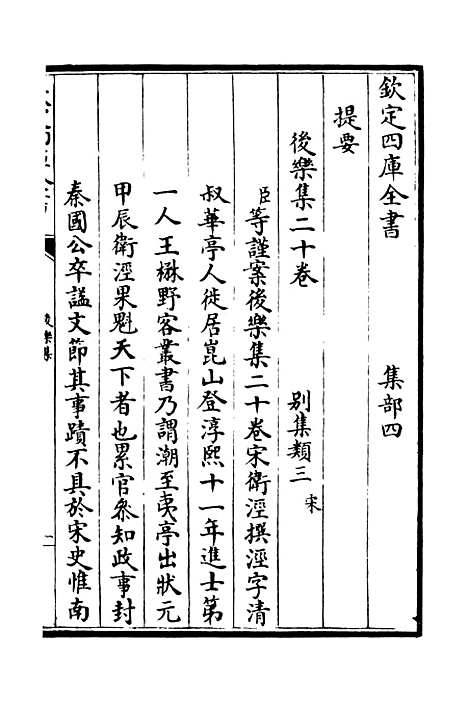 欽定四庫全書　集部四
提要
後樂集二十卷　別集類三宋
臣等謹案後樂集二十卷宋衛涇撰涇字清
叔華亭人徙居崑山登淳熙十一年進士第
一人王楙野客叢書乃謂潮至夷亭出狀元
甲辰衛涇果魁天下者也累官叅知政事封
秦國公卒諡文節其事蹟不具於宋史惟南
後樂集